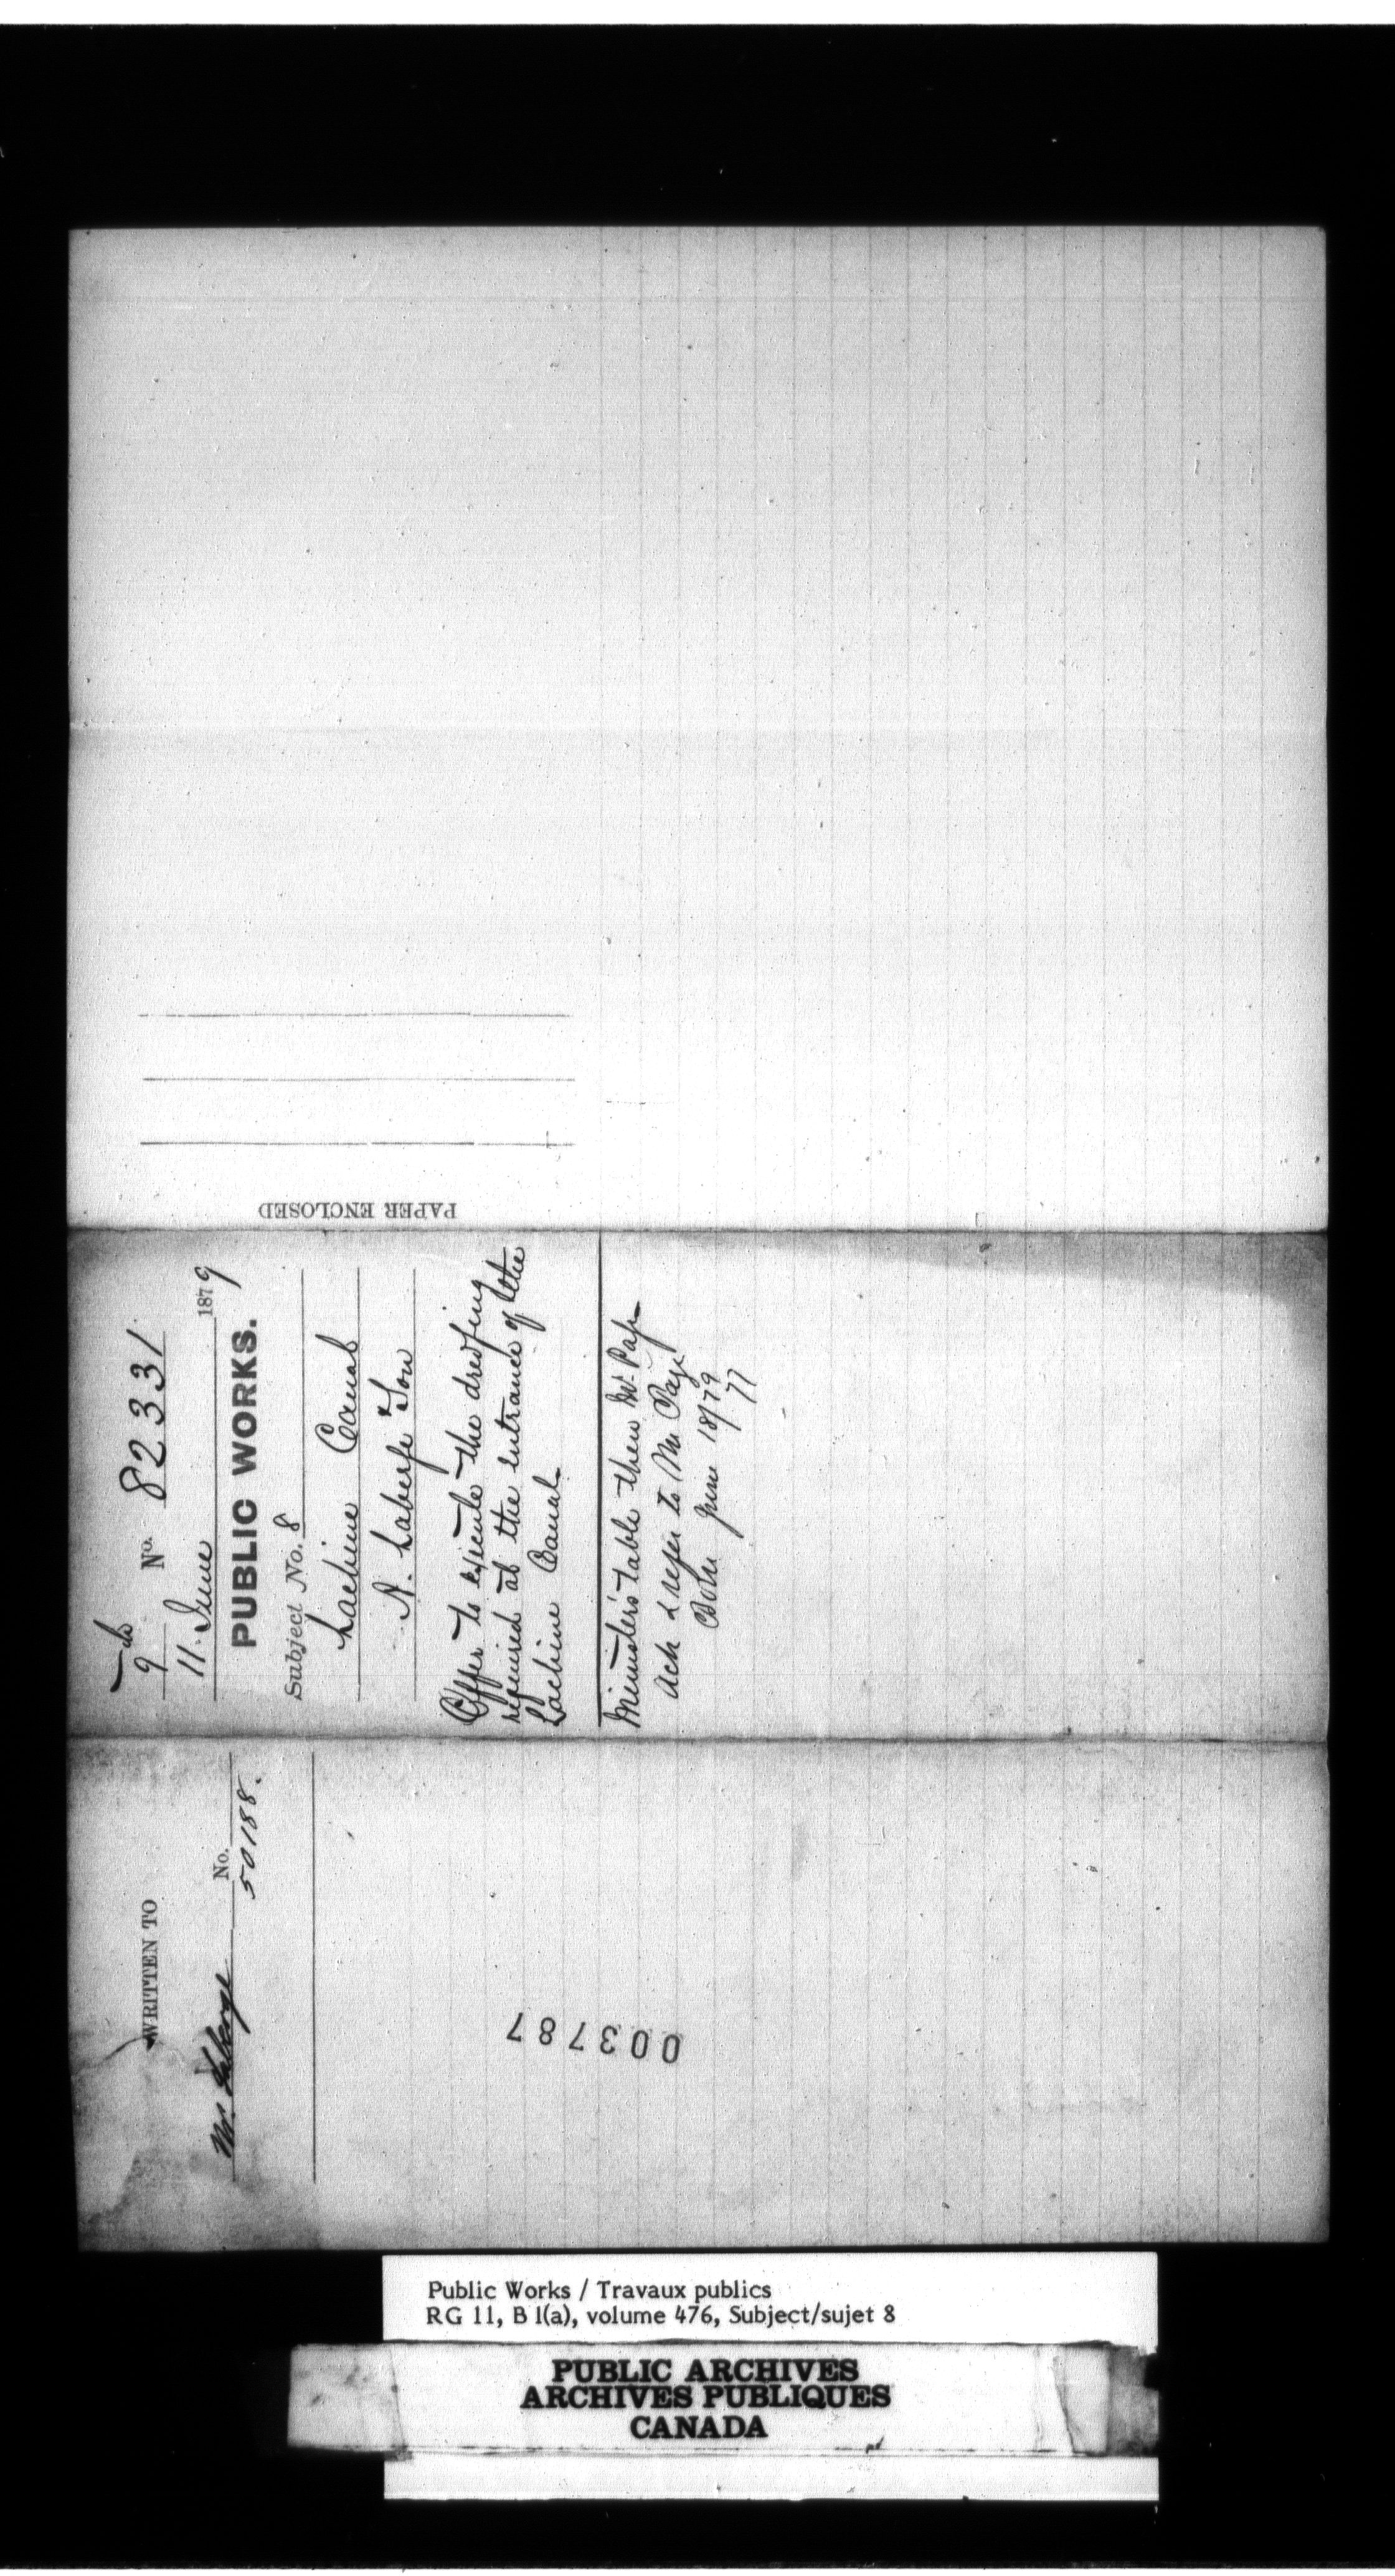 PAPER ENCLOSED
9 No. 82331
11. June 1879
PUBLIC WORKS.
Subject No. 8
Lachine Canal
N. Laberge & Son
Offer to execute the dredging
required at the entrance of the
Lachine Canal
Minister's table then Mr. Page
Ack & refer to Mr Page
June 18/79
77
WRITTEN TO
Mr Laberge No. 50188.
003787
Public Works / Travaux publics
RG 11, B 1(a), volume 476, Subject/sujet 8
PUBLIC ARCHIVES
ARCHIVES PUBLIQUES
CANADA